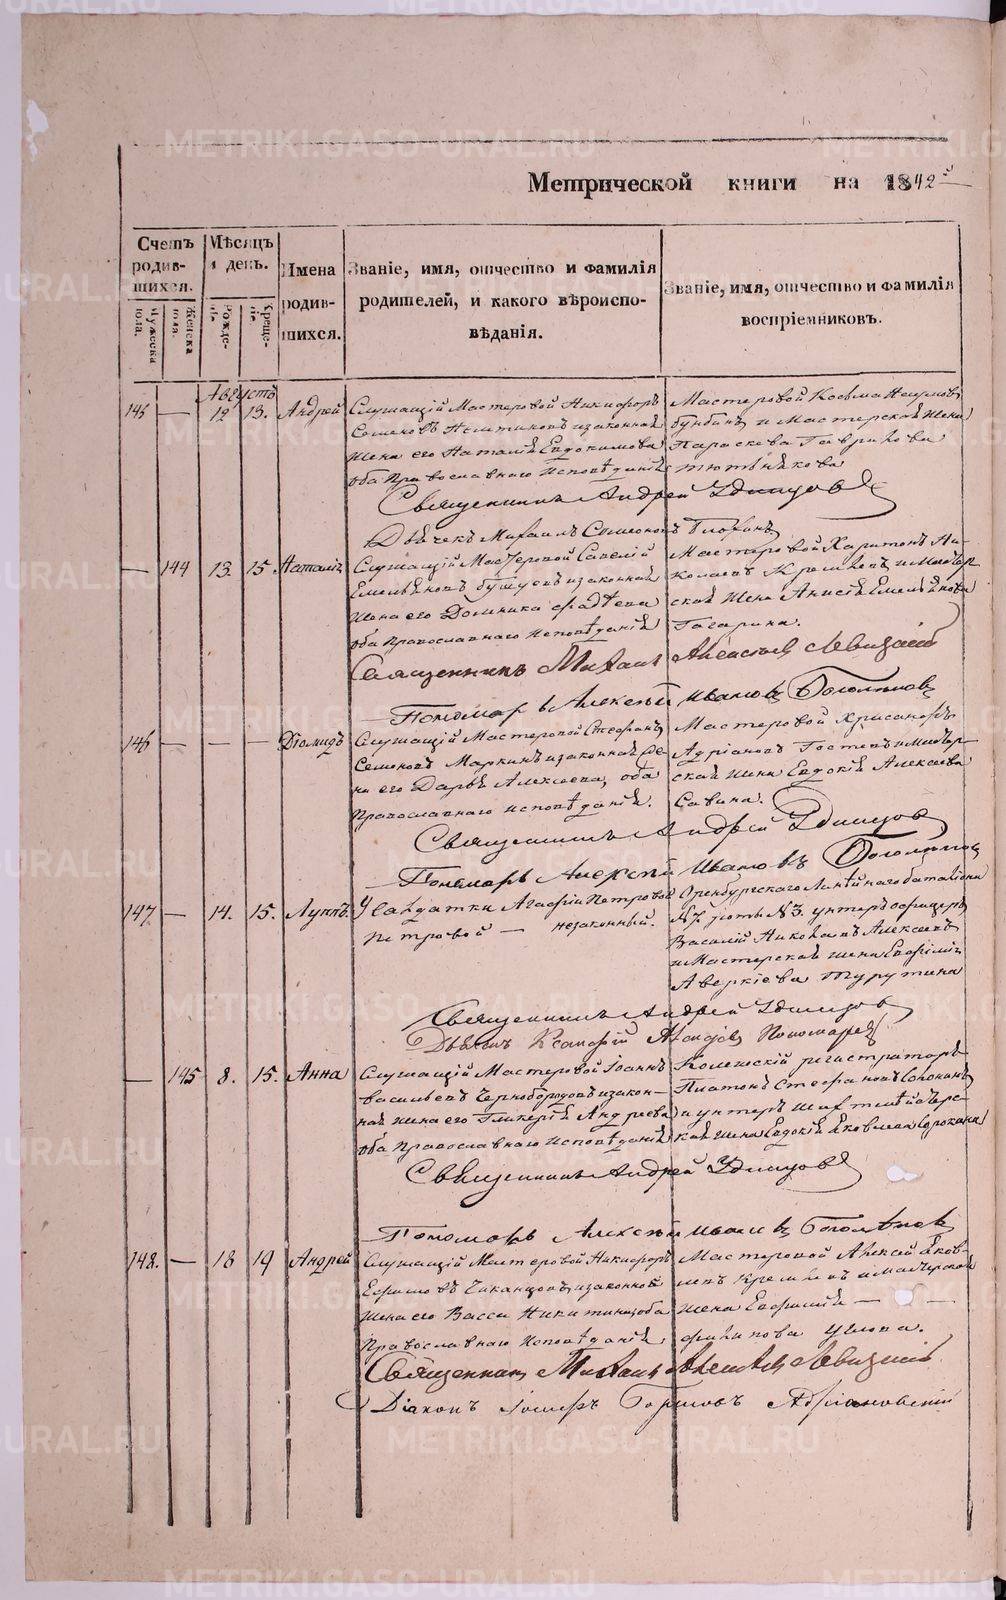 Метрической книги на 1842й
Счетъ родив-шихся.
Мужеска пола.
Женска пола.
Мѣсяцъ и день.
Рожде-нія.
Креще-нія.
Имена родив-шихся.
Званіе, имя, отчество и фамилія
родителей, и какого вѣроиспо-
вѣданія.
Званіе, имя, отчество и фамилія
воспріемниковъ.
Августъ
145 — 12 13. Андрей
Служащій Мастеровой Никифоръ
Семеновъ и законная
жена его Наталія Евдокимова
оба Православнаго Исповѣданія
Мастеровой Косьма
и Мастерская жена
Параскева Гаврилова
Священникъ Андрей Удинцовъ
Дьячекъ Михаилъ Симеоновъ
— 144 13. 15. Наталія
Служащій Мастеровой Савелій
Емельяновъ Бутуевъ и законная
жена его Домника Фадѣева
оба Православнаго Исповѣданія
Мастеровой Харитонъ Ни-
колаевъ и Мастер-
ская жена Анисія Емельянова
Гагарина.
Священникъ Михаилъ Алексѣевъ Левицкій
Пономарь Алексѣй Ивановъ Боголѣповъ
146 — — — Діомидъ
Служащій Мастеровой Стефанъ
Семеновъ Маркинъ и законная же-
на его Дарья Алексѣева, оба
Православнаго исповѣданія.
Мастеровой Хрисанфъ
Адріановъ Гостевъ и Мастер-
ская жена Евдокія Алексѣева
Савина.
Священникъ Андрей Удинцовъ
Пономарь Алексѣй Ивановъ Боголѣповъ
147. — 14. 15. Луппъ.
У Салдатки Агафіи Петровой
Петровой — незаконный.
Оренбургскаго Линѣйнаго баталіона
№ 3. унтеръ офицеръ
Василій Николаевъ Алексѣевъ
и Мастерская жена Евфимія
Аверкіева Турутина
Священникъ Андрей Удинцовъ
Дьяконъ Пономаревъ
— 145 8. 15. Анна
Служащій Мастеровой Іоаннъ
Васильевъ Чернобородовъ и закон-
ная жена его Гликерія Андреева
оба Православнаго Исповѣданія
Колежскій регистраторъ
Платонъ Стефановъ Сорокинъ
и унтеръ шихтмейстерс-
кая жена Евдокія Яковлева Сорокина
Священникъ Андрей Удинцовъ
Пономарь Алексѣй Ивановъ Боголѣповъ
148. — 18 19 Андрей
Служащій Мастеровой Никифоръ
Ефимовъ и законная
жена его Васса Никитина, оба
Православнаго Исповѣданія.
Мастеровой Алексѣй Яков-
левъ и Мастерская
жена Евфимія —
Филипова Углова.
Священникъ Михаилъ Алексѣевъ Левицкій
Діаконъ Іосифъ Адріановскій